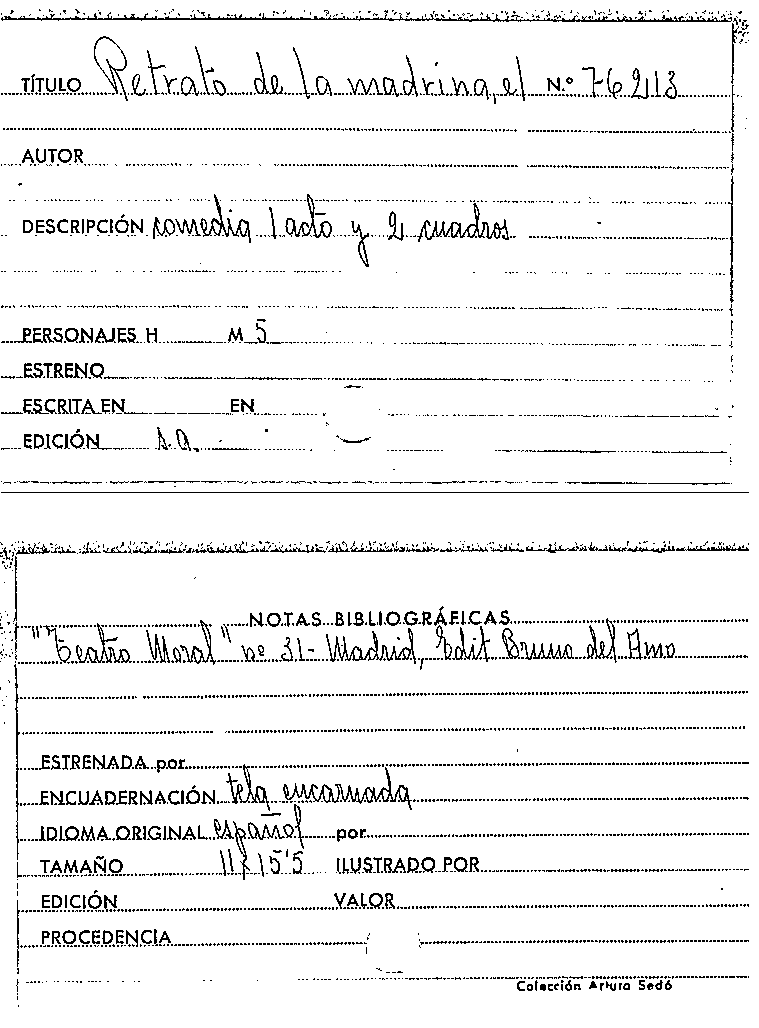 TÍTULO Retrato de la madrina, el N.º 76213
AUTOR
DESCRIPCIÓN comedia 1 acto y 2 cuadros
PERSONAJES H M 5
ESTRENO
ESCRITA EN EN
EDICIÓN s.a.
NOTAS BIBLIOGRÁFICAS
"Teatro Moral" nº 31- Madrid, Edit Bruno del Amo
ESTRENADA por
ENCUADERNACIÓN tela encarnada
IDIOMA ORIGINAL español por
TAMAÑO 11x15'5 ILUSTRADO POR
EDICIÓN VALOR
PROCEDENCIA
Colección Arturo Sedó